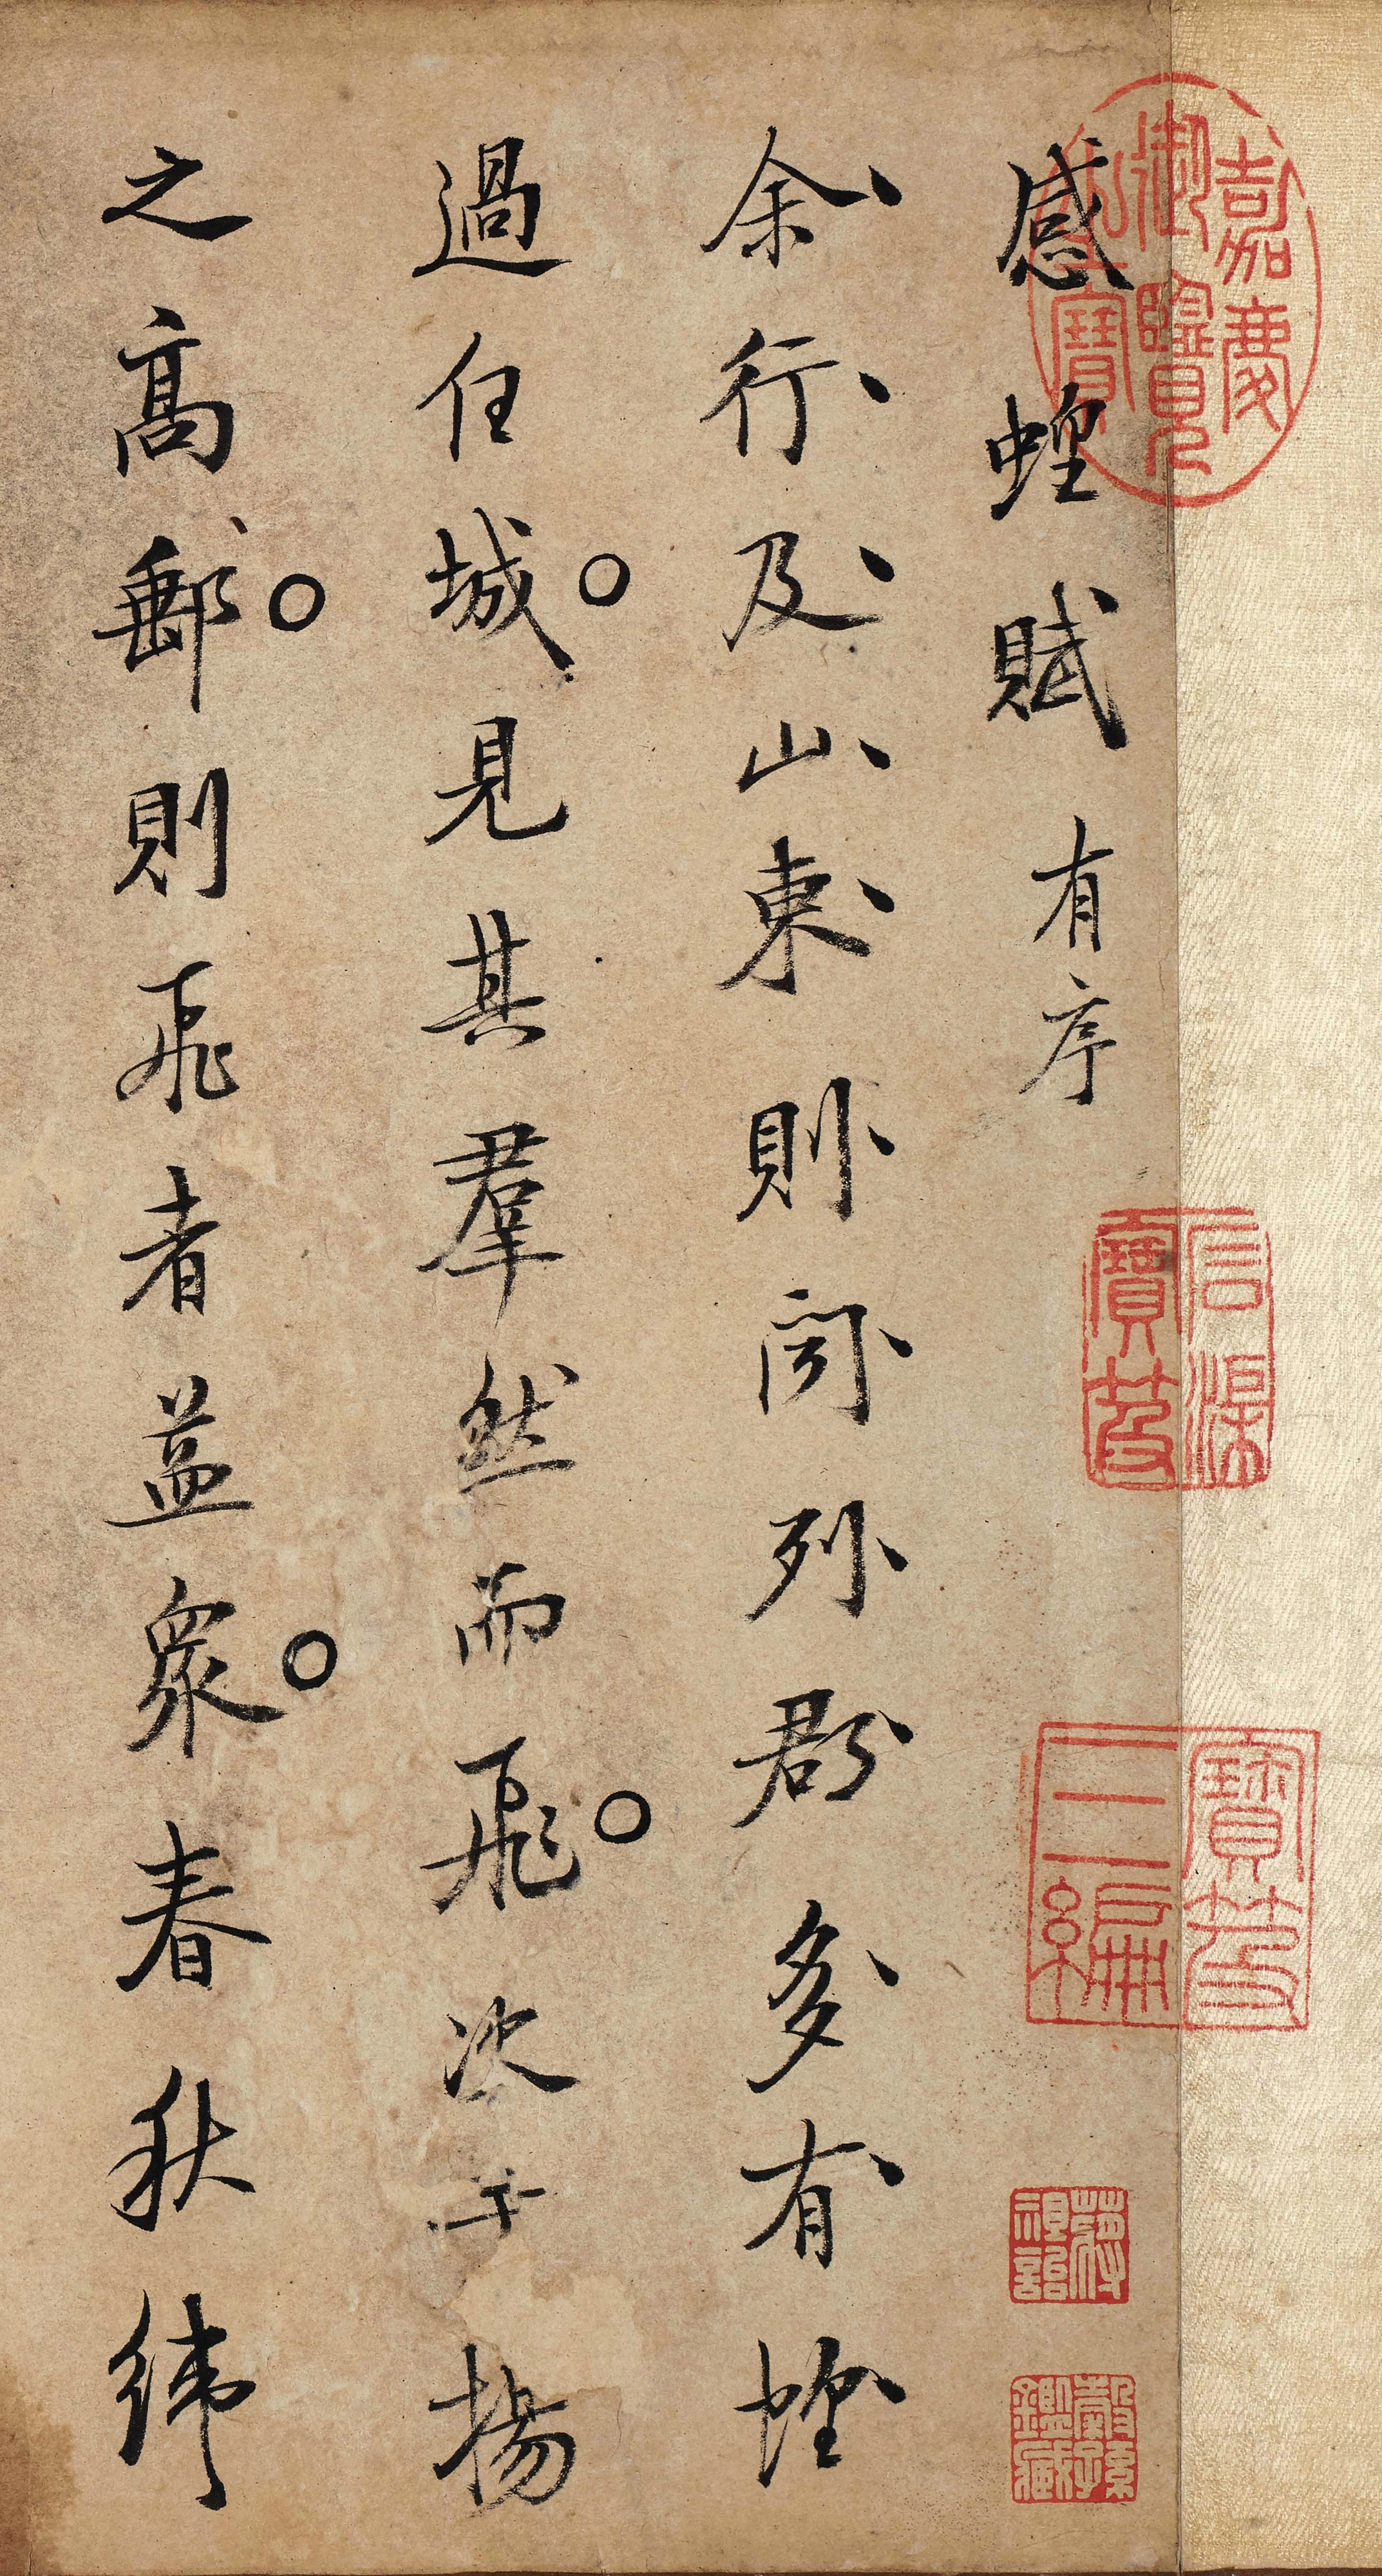 感蝗賦 有序
余行及山東則聞列郡多有蝗
過任城見其羣然而飛次于揚
之高郵則飛者益衆春秋緯
嘉慶御覽之寶
石渠寶笈
寶笈三編